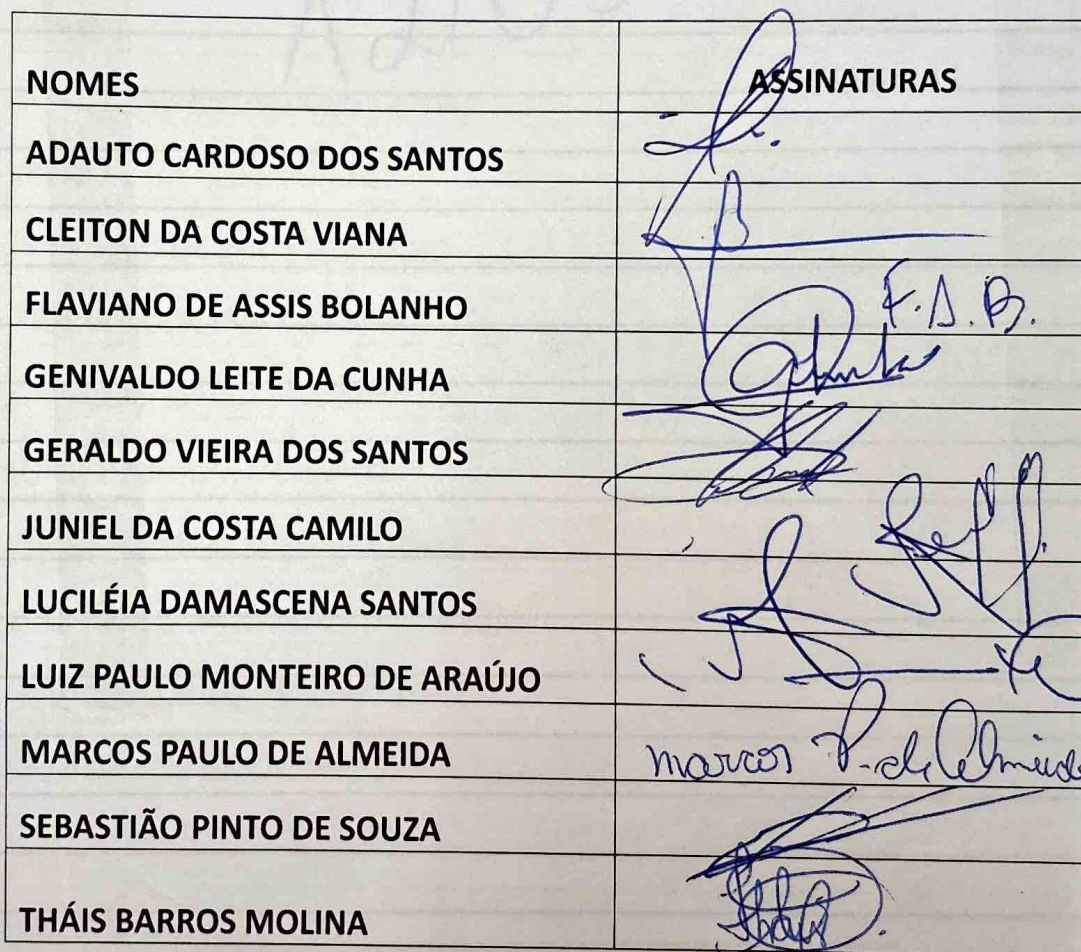 NOMES ASSINATURAS
ADAUTO CARDOSO DOS SANTOS
CLEITON DA COSTA VIANA
FLAVIANO DE ASSIS BOLANHO F.A.B.
GENIVALDO LEITE DA CUNHA
GERALDO VIEIRA DOS SANTOS
JUNIEL DA COSTA CAMILO
LUCILÉIA DAMASCENA SANTOS
LUIZ PAULO MONTEIRO DE ARAÚJO
MARCOS PAULO DE ALMEIDA marcos P. de Almeida
SEBASTIÃO PINTO DE SOUZA
THÁIS BARROS MOLINA